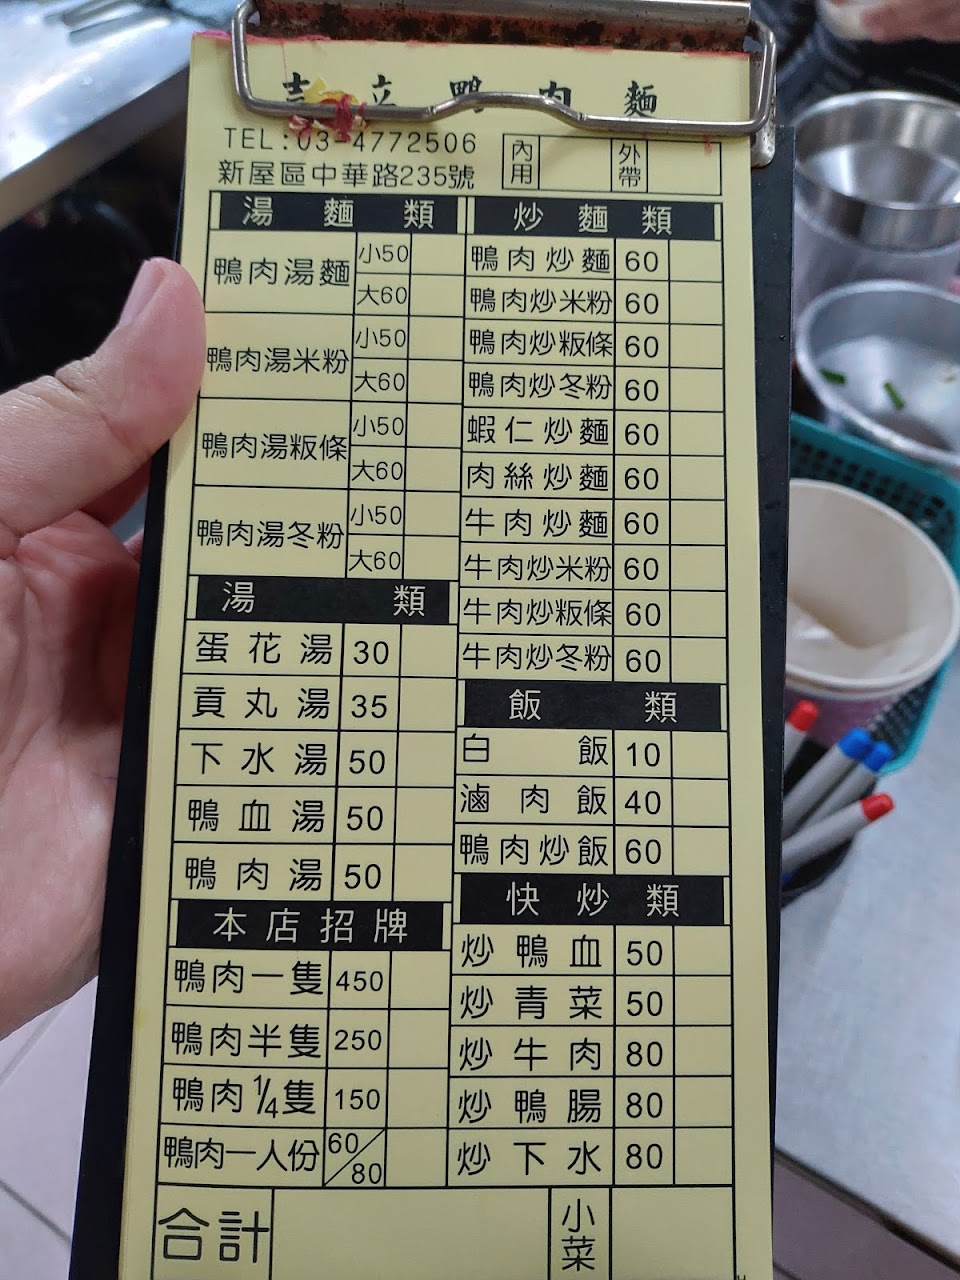 吉立鴨肉麵
TEL:03-4772506
新屋區中華路235號
內用
外帶
湯麵類
鴨肉湯麵 小50
大60
鴨肉湯米粉 小50
大60
鴨肉湯粄條 小50
大60
鴨肉湯冬粉 小50
大60
湯類
蛋花湯 30
貢丸湯 35
下水湯 50
鴨血湯 50
鴨肉湯 50
本店招牌
鴨肉一隻 450
鴨肉半隻 250
鴨肉1/4隻 150
鴨肉一人份 60/80
炒麵類
鴨肉炒麵 60
鴨肉炒米粉 60
鴨肉炒粄條 60
鴨肉炒冬粉 60
蝦仁炒麵 60
肉絲炒麵 60
牛肉炒麵 60
牛肉炒米粉 60
牛肉炒粄條 60
牛肉炒冬粉 60
飯類
白飯 10
滷肉飯 40
鴨肉炒飯 60
快炒類
炒鴨血 50
炒青菜 50
炒牛肉 80
炒鴨腸 80
炒下水 80
合計
小菜